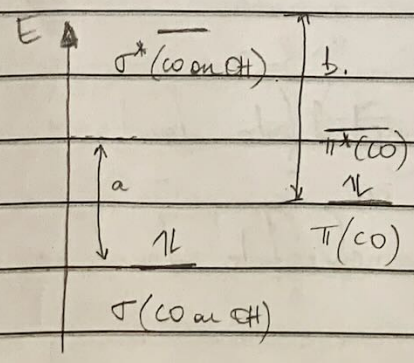 E
σ* (CO ou CH)
b.
π* (CO)
a
π (CO)
σ (CO ou CH)